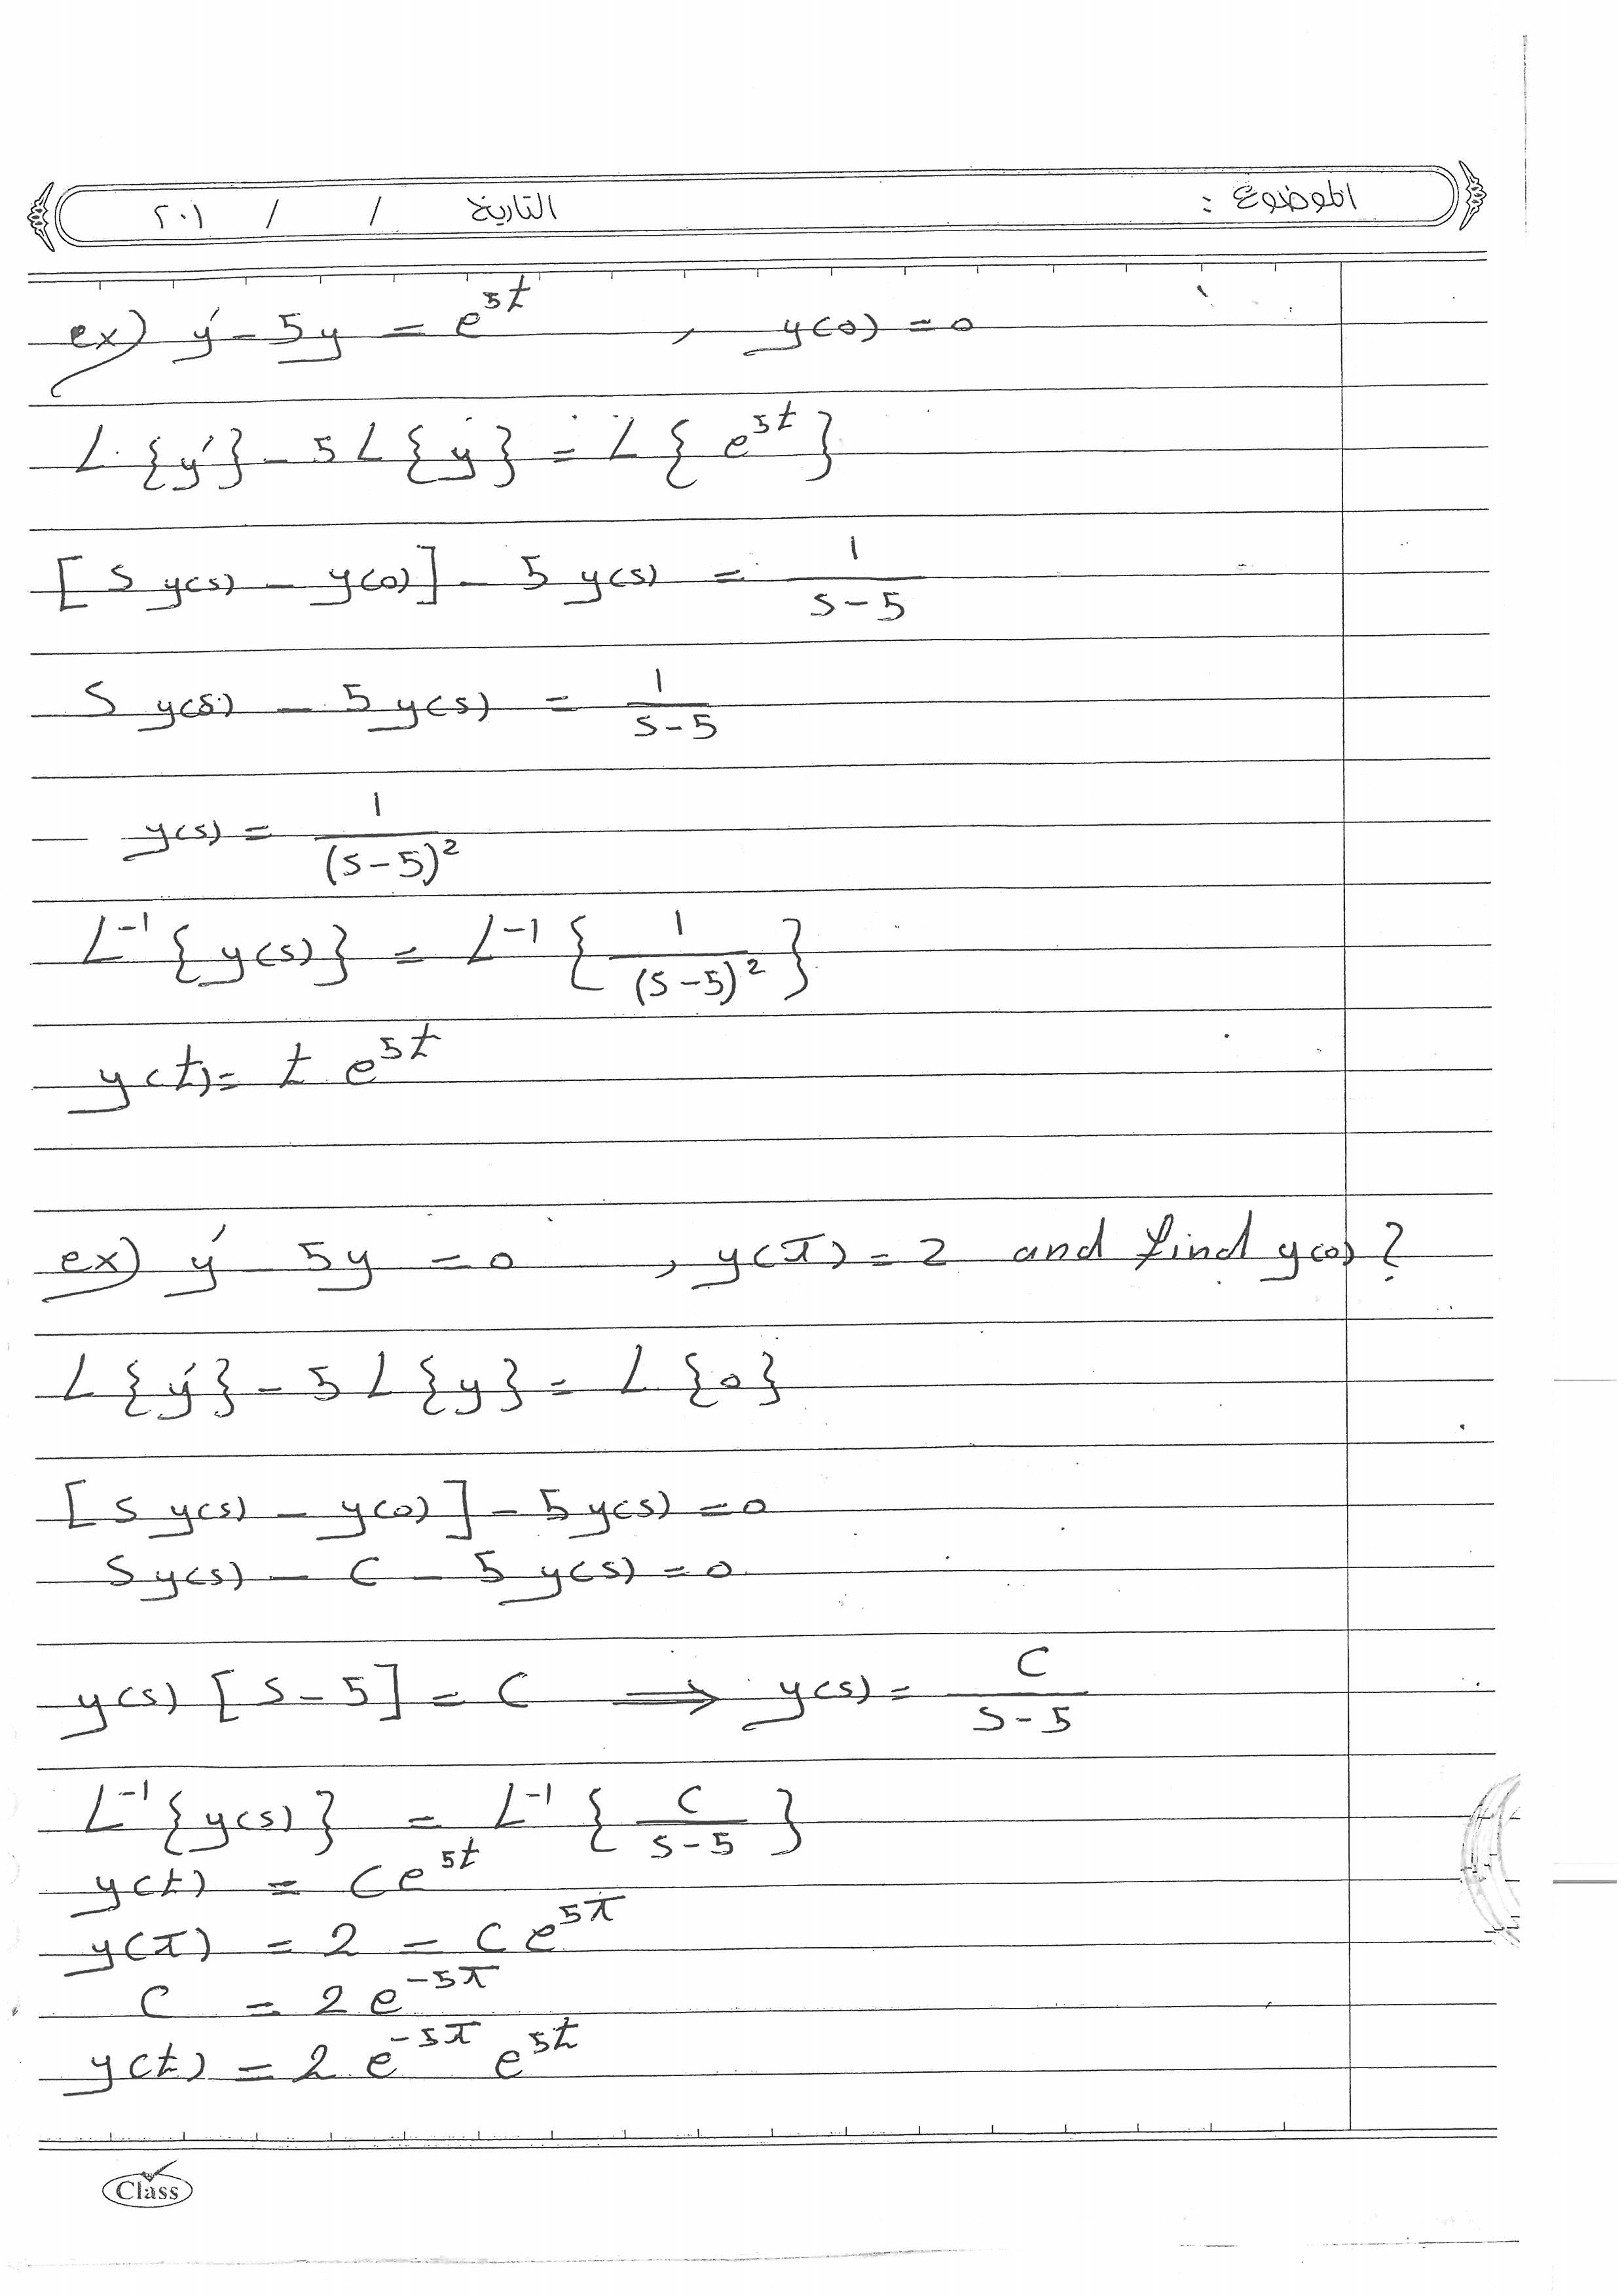 الموضوع : التاريخ / / ٢٠١
ex) y' - 5y = e^{5t} , y(0) = 0
L{y'} - 5L{y} = L{e^{5t}}
[s y(s) - y(0)] - 5 y(s) = 1/(s-5)
s y(s) - 5y(s) = 1/(s-5)
y(s) = 1/(s-5)^2
L^{-1}{y(s)} = L^{-1}{1/(s-5)^2}
y(t) = t e^{5t}
ex) y' - 5y = 0 , y(π) = 2 and find y(0)?
L{y'} - 5L{y} = L{0}
[s y(s) - y(0)] - 5y(s) = 0
s y(s) - c - 5 y(s) = 0
y(s) [s - 5] = c ⟹ y(s) = c/(s-5)
L^{-1}{y(s)} = L^{-1}{c/(s-5)}
y(t) = c e^{5t}
y(π) = 2 = c e^{5π}
c = 2 e^{-5π}
y(t) = 2 e^{-5π} e^{5t}
Class